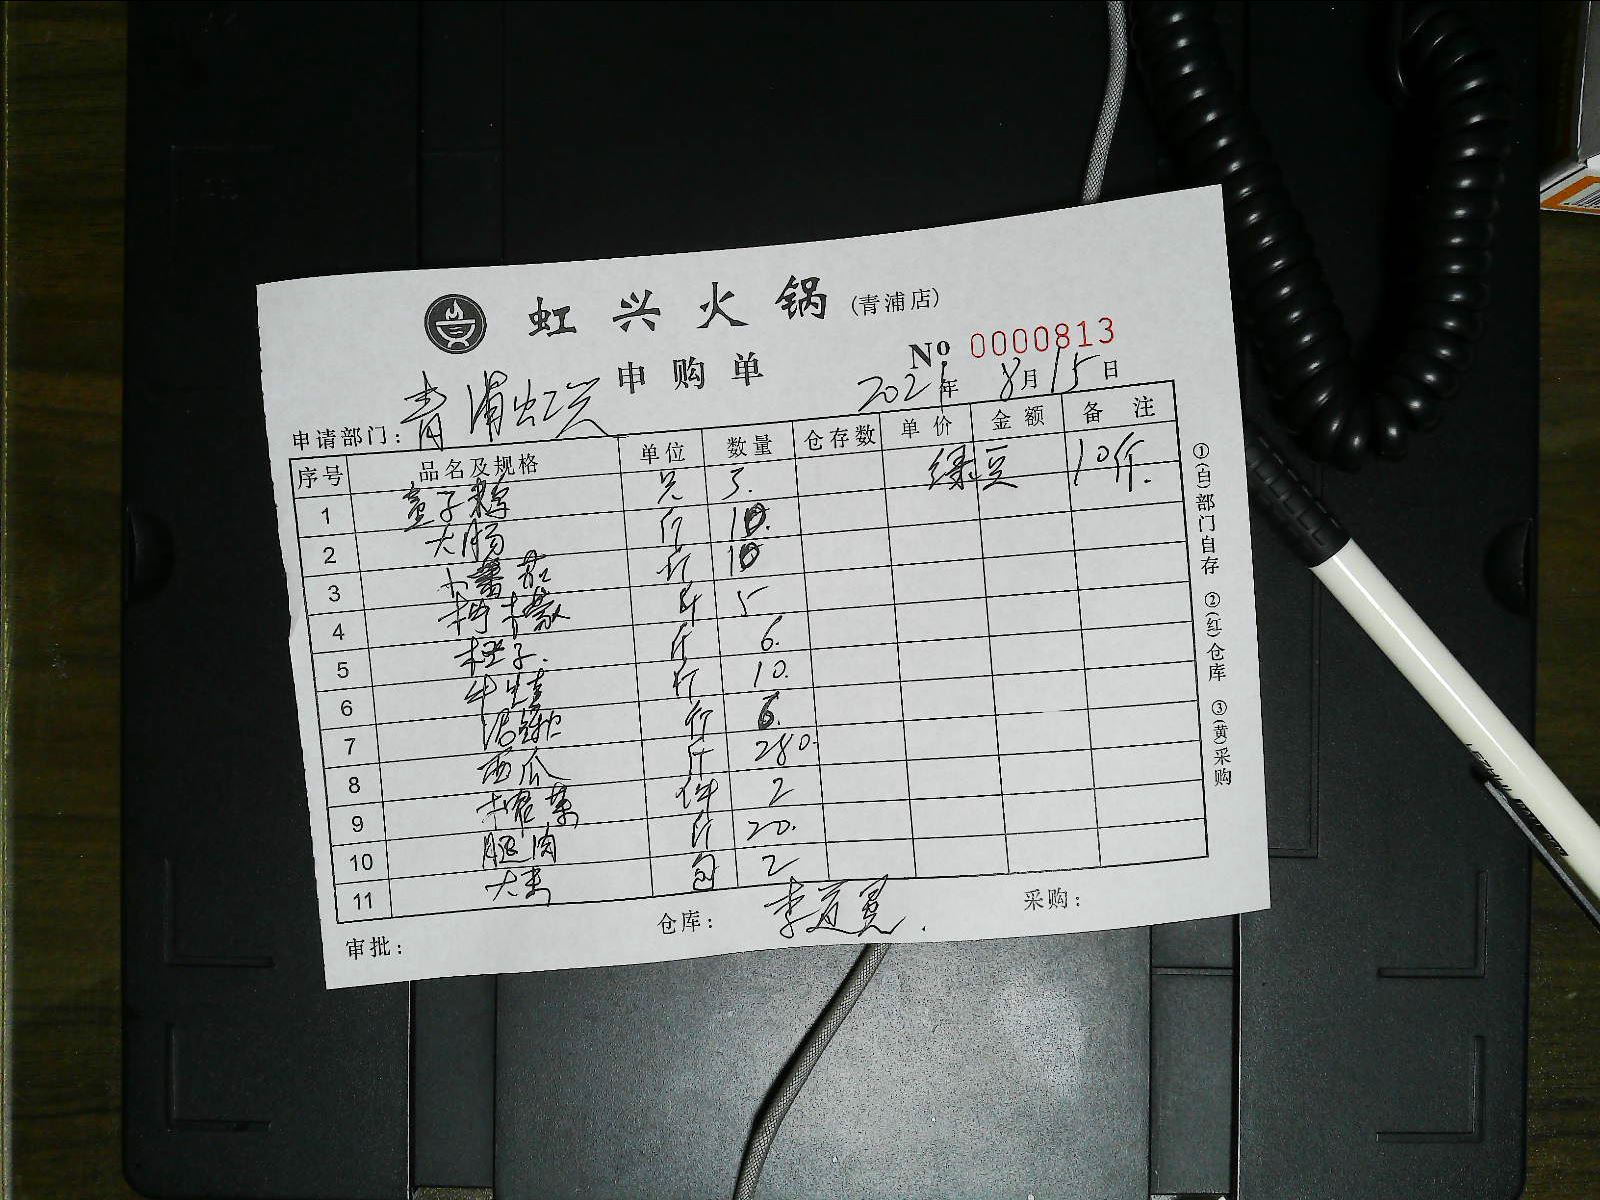 虹兴火锅(青浦店)
申购单
No 0000813
申请部门: 青浦虹兴 2021年 8月15日
序号 品名及规格 单位 数量 仓存数 单价 金额 备注
1 童子 只 3. 绿豆 10斤.
2 大肠 斤 10.
3 小番茄 斤 10
4 柠檬 斤 5
5 橙子. 斤 6.
6 牛蛙 斤 10.
7 斤 6.
8 西瓜 斤 280.
9 菜 件 2
10 腿肉 斤 20.
11 大 包 2
审批: 仓库: 李 采购:
①(白)部门自存 ②(红)仓库 ③(黄)采购